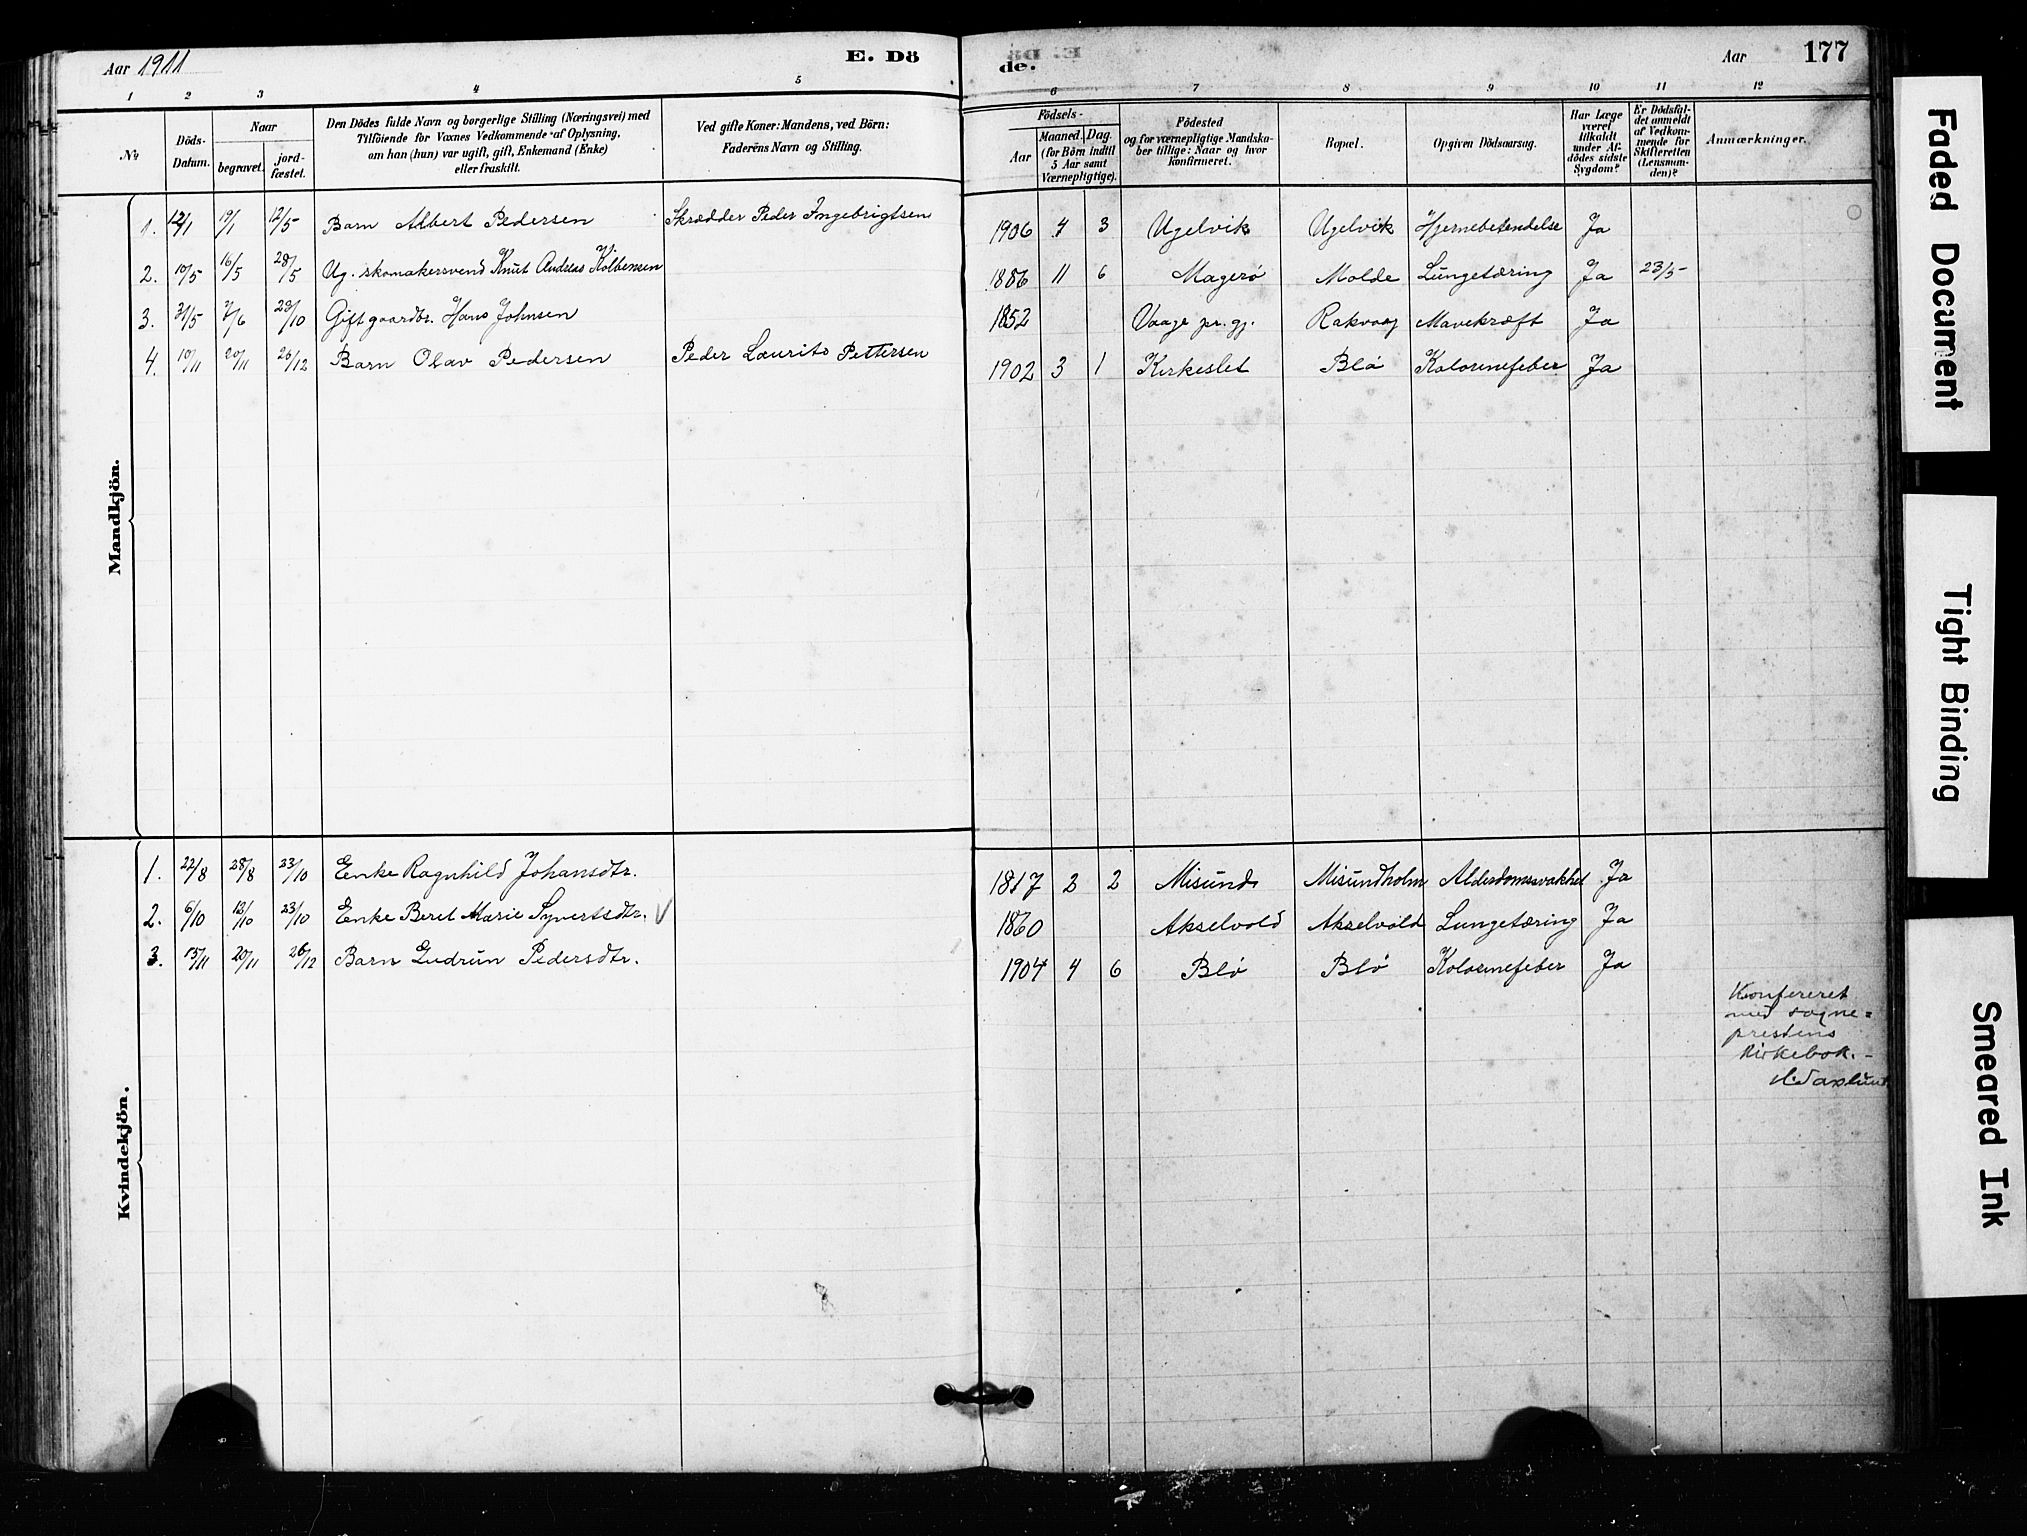 Aar 1911
E. Dö
de.
Aar
177
1 2 3 4 5 6 7 8 9 10 11 12
No.
Döds-Datum.
Naar
begravet.
jord-fæstet.
Den Dödes fulde Navn og borgerlige Stilling (Næringsvei) med
Tilföiende for Voxnes Vedkommende af Oplysning,
om han (hun) var ugift, gift, Enkemand (Enke)
eller fraskilt.
Ved gifte Koner: Mandens, ved Börn:
Faderens Navn og Stilling.
Födsels-
Aar
Maaned. Dag.
(for Börn indtil
5 Aar samt
Værnepligtige).
Födested
og for værnepligtige Mandska-
ber tillige: Naar og hvor
konfirmeret.
Bopæl.
Opgiven Dödsaarsag.
Har Læge
været
tilkaldt
under Af-
dödes sidste
Sygdom?
Er Dödsfal-
det anmeldt
af Vedkom-
mende for
Skifteretten
(Lensman-
den)?
Anmærkninger.
Mandkjön.
1. 12/1 19/1 12/5 Barn Albert Pedersen Skrædder Peder Ingebrigtsen 1906 4 3 Ugelvik Ugelvik Hjernebetendelse Ja
2. 10/5 16/5 28/5 Ug. skomakersvend Knut Andreas K. Kolbensen 1886 11 6 Magerø Molde Lungetæring Ja 23/5
3. 31/5 7/6 23/10 Gift gaardbr. Hans Johnsen 1852 Vaage pr. gj. Rakvaag Mavekræft Ja
4. 10/11 20/11 26/12 Barn Olav Pedersen Peder Laurits Pettersen 1902 3 1 Kirkeslet Blø Kolorinefeber Ja
Kvindekjön.
1. 22/8 28/8 23/10 Enke Ragnhild Johansdtr. 1817 2 2 Misund Misundholm Alderdomssvakhet Ja
2. 6/10 12/10 23/10 Enke Beret Marie Syvertsdtr. 1860 Akselvold Akselvold Lungetæring Ja
3. 15/11 20/11 26/12 Barn Gudrun Pedersdtr. 1904 4 6 Blø Blø Kolorinefeber Ja
Konfereret
med sogne=
prestens
kirkebok. -
Faded Document
Tight Binding
Smeared Ink